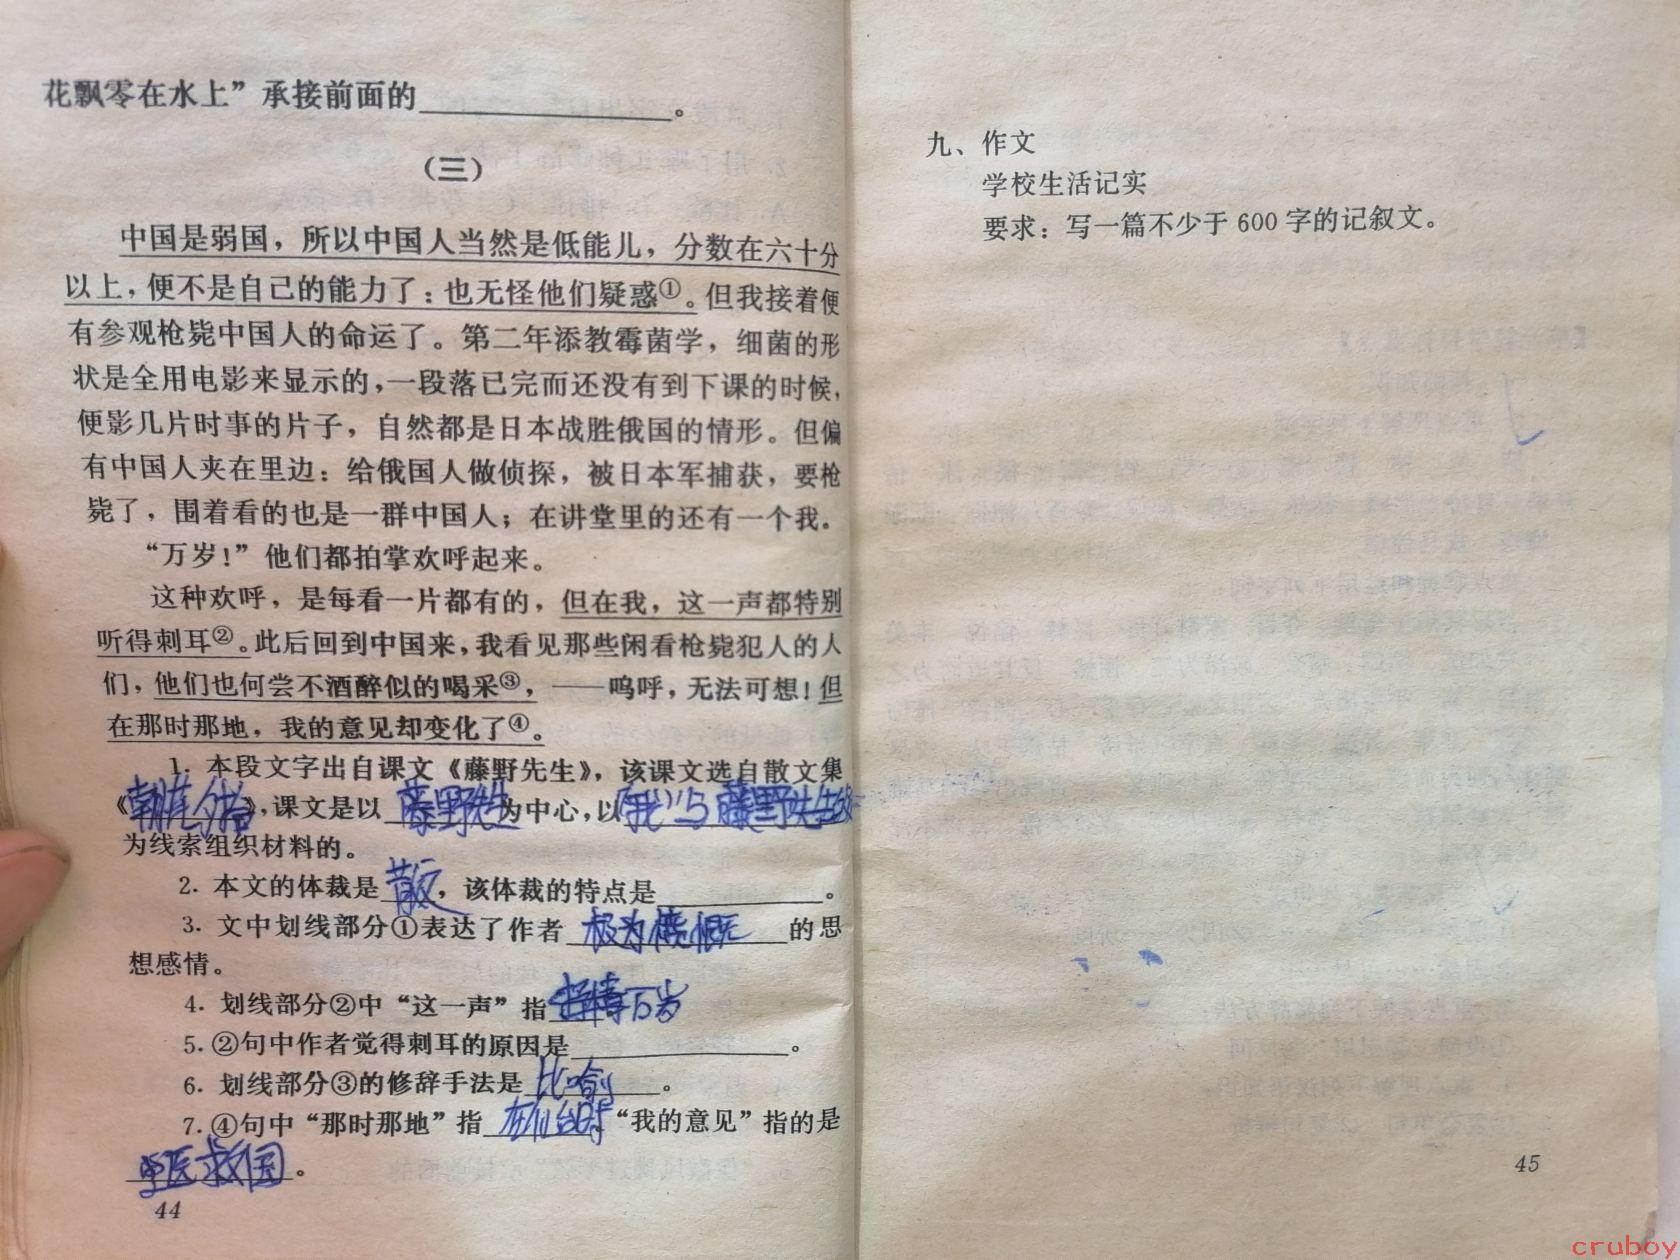 花飘零在水上”承接前面的________。
(三)
中国是弱国，所以中国人当然是低能儿，分数在六十分
以上，便不是自己的能力了：也无怪他们疑惑①。但我接着便
有参观枪毙中国人的命运了。第二年添教霉菌学，细菌的形
状是全用电影来显示的，一段落已完而还没有到下课的时候，
便影几片时事的片子，自然都是日本战胜俄国的情形。但偏
有中国人夹在里边：给俄国人做侦探，被日本军捕获，要枪
毙了，围着看的也是一群中国人；在讲堂里的还有一个我。
“万岁！”他们都拍掌欢呼起来。
这种欢呼，是每看一片都有的，但在我，这一声都特别
听得刺耳②。此后回到中国来，我看见那些闲看枪毙犯人的人
们，他们也何尝不酒醉似的喝采③，——呜呼，无法可想！但
在那时那地，我的意见却变化了④。
1. 本段文字出自课文《藤野先生》，该课文选自散文集
《朝花夕拾》，课文是以藤野先生为中心，以“我”与藤野先生
为线索组织材料的。
2. 本文的体裁是散文，该体裁的特点是________。
3. 文中划线部分①表达了作者极为愤慨的思
想感情。
4. 划线部分②中“这一声”指万岁
5. ②句中作者觉得刺耳的原因是________。
6. 划线部分③的修辞手法是比喻。
7. ④句中“那时那地”指在仙台时“我的意见”指的是
学医救国。
44
九、作文
学校生活记实
要求：写一篇不少于 600 字的记叙文。
45
cruboy